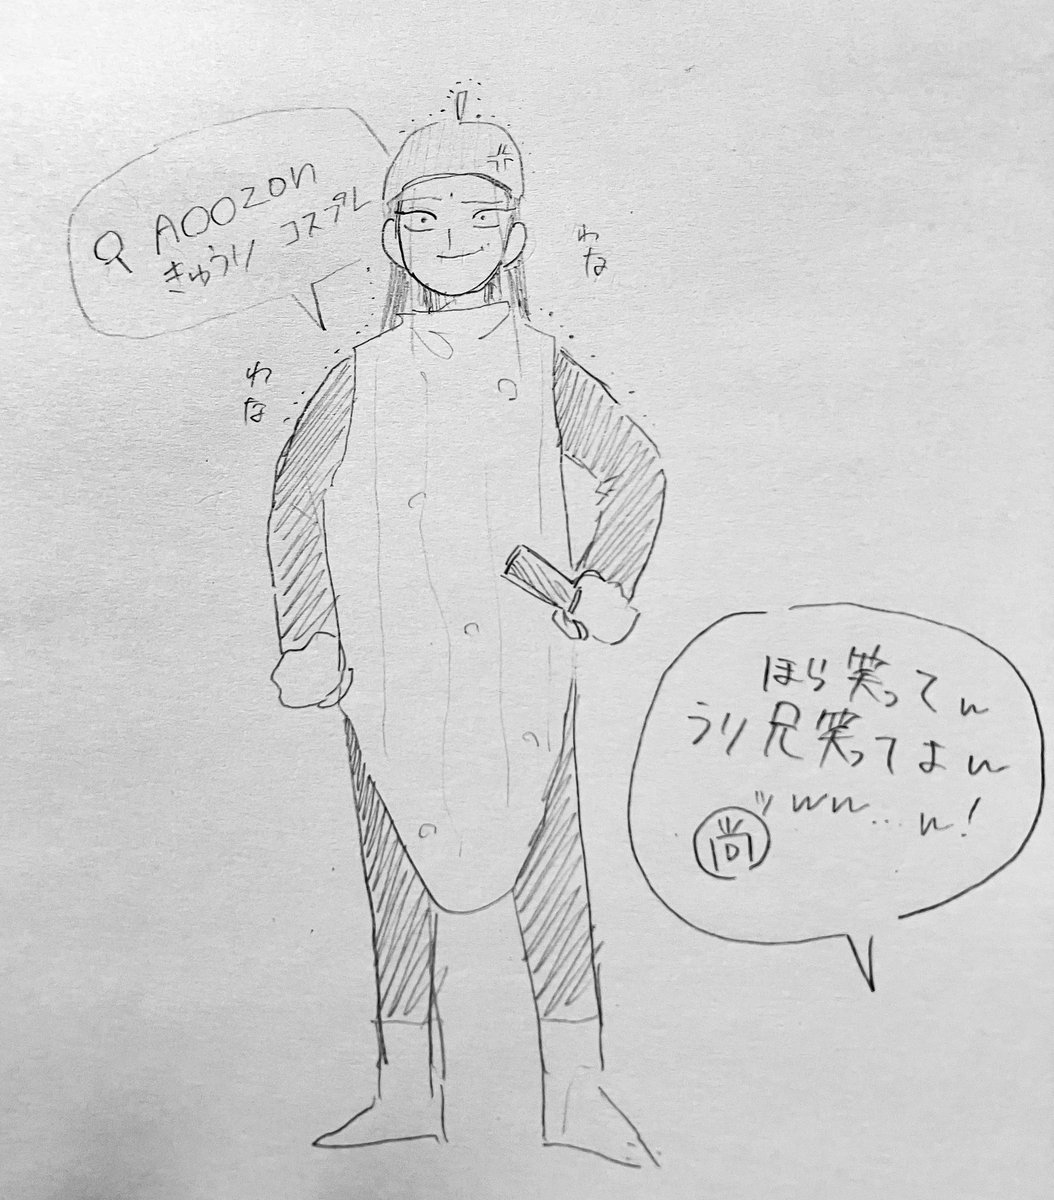 AOOzon
きゅうり コスプレ
わな
わな
ほら笑ってw
うり兄笑ってよw
ッww...w!
尚